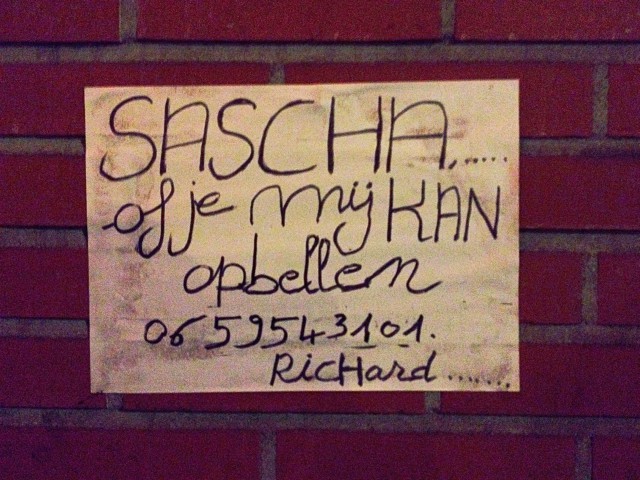 SASCHA......
of je mij KAN
opbellen
0659543101.
RicHard.......